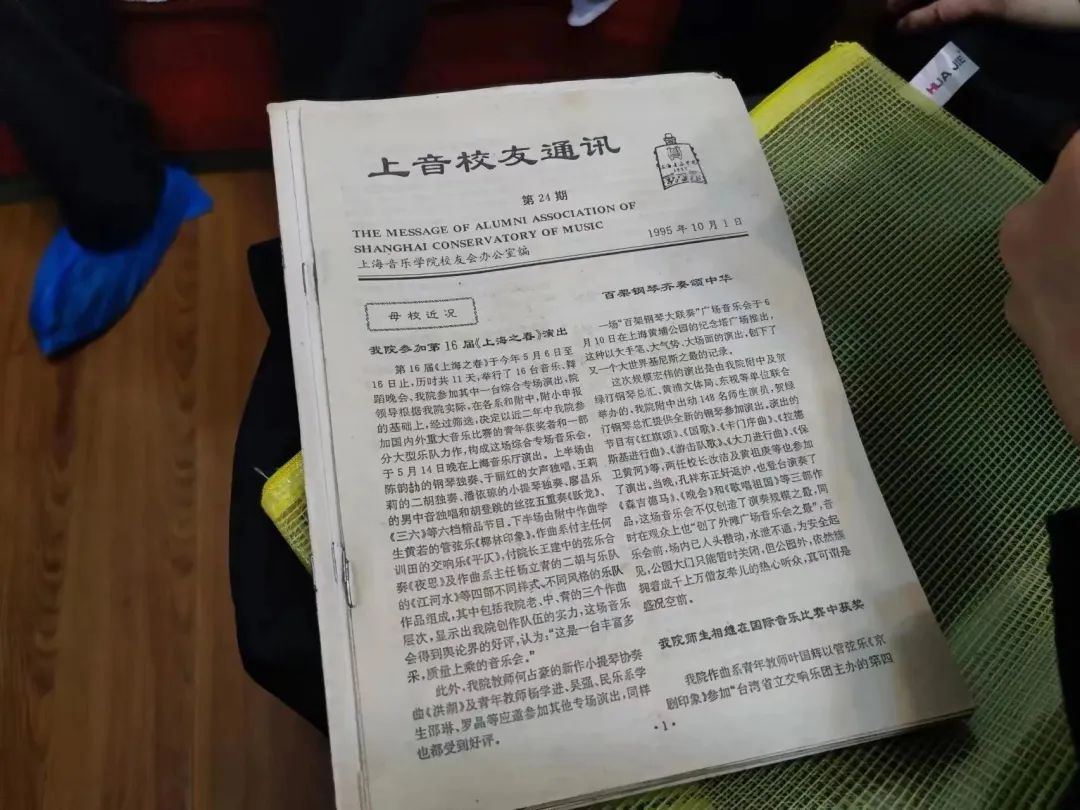 上音校友通讯
第24期
THE MESSAGE OF ALUMNI ASSOCIATION OF
SHANGHAI CONSERVATORY OF MUSIC
上海音乐学院校友会办公室编
1995年10月1日
母校近况
我院参加第16届《上海之春》演出
第16届《上海之春》于今年5月6日至
16日止,历时共11天,举行了16台音乐、舞
蹈晚会、我院参加其中一台综合专场演出,院
领导根据我院实际,在各系和附中,附小申报
的基础上,经过筛选,决定以近二年中我院参
加国内外重大音乐比赛的青年获奖者和一部
分大型乐队力作,构成这场综合专场音乐会,
于5月14日晚在上海音乐厅演出。上半场由
陈韵劼的钢琴独奏、于丽红的女声独唱、王莉
莉的二胡独奏、潘依琼的小提琴独奏、廖昌乐
的男中音独唱和胡登跳的丝弦五重奏《跃龙》、
《三六》等六档精品节目。下半场由附中作曲学
生黄若的管弦乐《椰林印象》,作曲系付主任何
训田的交响乐《平仄》,付院长王建中的弦乐合
奏《夜思》及作曲系主任杨立青的二胡与乐队
的《江河水》等四部不同样式、不同风格的乐队
作品组成,其中包括我院老、中、青的三个作曲
层次,显示出我院创作队伍的实力,这场音乐
会得到舆论界的好评,认为:“这是一台丰富多
采,质量上乘的音乐会。”
此外,我院教师何占豪的新作小提琴协奏
曲《洪湖》及青年教师杨学进、吴强、民乐系学
生邵琳、罗晶等应邀参加其他专场演出,同样
也都受到好评。
百架钢琴齐奏颂中华
一场“百架钢琴大联奏”广场音乐会于6
月10日在上海黄埔公园的纪念塔广场推出,
这种以大手笔、大气势、大场面的演出,创下了
又一个大世界基尼斯之最的记录。
这次规模宏伟的演出是由我院附中及贺
绿汀钢琴总汇、黄浦文体局、东视等单位联合
举办的,我院附中出动148名师生演员,贺绿
汀钢琴总汇提供全新的钢琴参加演出。演出的
节目有《红旗颂》、《国歌》、《卡门序曲》、《拉德
斯基进行曲》、《游击队歌》、《大刀进行曲》、《保
卫黄河》等,两任校长汝洁及黄祖庚等也参加
了演出。当晚,孔祥东正好返沪,也登台演奏了
《森吉德马》、《晚会》和《歌唱祖国》等三部作
品,这场音乐会不仅创造了演奏规模之最,同
时在观众上也“创了外滩广场音乐会之最”,音
乐会前,场内已人头攒动,水泄不通,为安全起
见,公园大门只能暂时关闭,但公园外,依然簇
拥着成千上万值友牵儿的热心听众,真可谓是
盛况空前。
我院师生相继在国际音乐比赛中获奖
我院作曲系青年教师叶国辉以管弦乐《京
剧印象》参加“台湾省立交响乐团主办的第四
·1·
HUA JIE